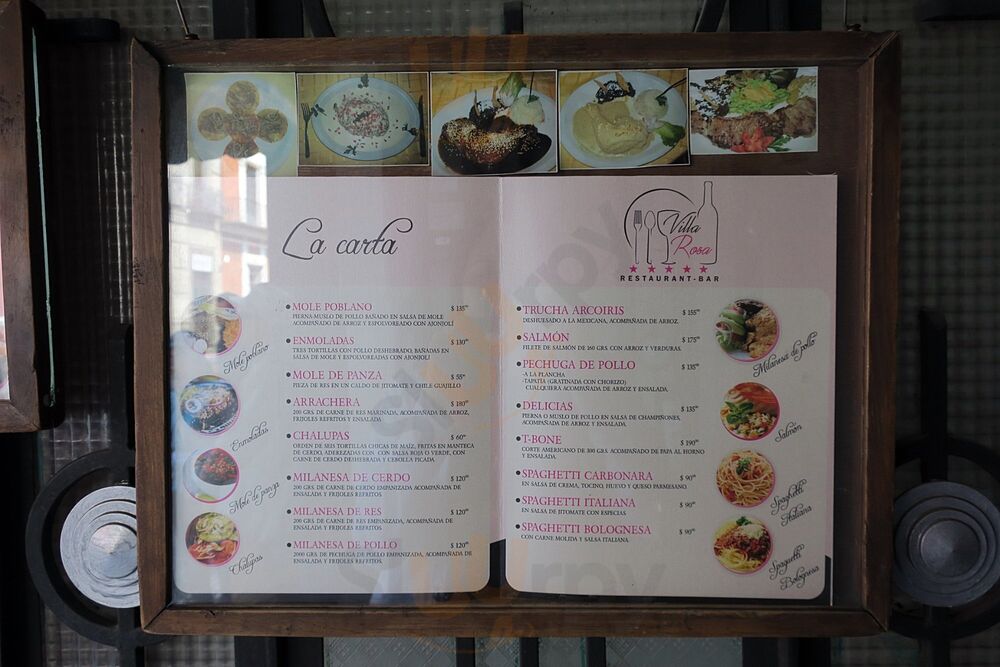 La carta
MOLE POBLANO $ 135⁰⁰
PIERNA-MUSLO DE POLLO BAÑADO EN SALSA DE MOLE
ACOMPAÑADO DE ARROZ Y ESPOLVOREADO CON AJONJOLÍ
ENMOLADAS $ 130⁰⁰
TRES TORTILLAS CON POLLO DESHEBRADO, BAÑADAS EN
SALSA DE MOLE Y ESPOLVOREADAS CON AJONJOLÍ
MOLE DE PANZA $ 55⁰⁰
PIEZA DE RES EN UN CALDO DE JITOMATE Y CHILE GUAJILLO
ARRACHERA $ 180⁰⁰
200 GRS DE CARNE DE RES MARINADA, ACOMPAÑADA DE ARROZ,
FRIJOLES REFRITOS Y ENSALADA
CHALUPAS $ 60⁰⁰
ORDEN DE SEIS TORTILLAS CHICAS DE MAÍZ, FRITAS EN MANTECA
DE CERDO, ADEREZADAS CON CON SALSA ROJA O VERDE, CON
CARNE DE CERDO DESHEBRADA Y CEBOLLA PICADA
MILANESA DE CERDO $ 120⁰⁰
200 GRS DE CARNE DE CERDO EMPANIZADA ACOMPAÑADA DE
ENSALADA Y FRIJOLES REFRITOS
MILANESA DE RES $ 120⁰⁰
200 GRS DE CARNE DE RES EMPANIZADA, ACOMPAÑADA DE
ENSALADA Y FRIJOLES REFRITOS
MILANESA DE POLLO $ 120⁰⁰
2000 GRS DE PECHUGA DE POLLO EMPANIZADA, ACOMPAÑADA DE
ENSALADA Y FRIJOLES REFRITOS.
Mole poblano
Enmoladas
Mole de panza
Chalupas
Villa
Rosa
RESTAURANT-BAR
TRUCHA ARCOIRIS $ 155⁰⁰
DESHUESADO A LA MEXICANA, ACOMPAÑADA DE ARROZ.
SALMÓN $ 175⁰⁰
FILETE DE SALMÓN DE 160 GRS. CON ARROZ Y VERDURAS.
PECHUGA DE POLLO $ 135⁰⁰
-A LA PLANCHA
-TAPATÍA (GRATINADA CON CHORIZO)
CUALQUIERA ACOMPAÑADA DE ARROZ Y ENSALADA
DELICIAS $ 135⁰⁰
PIERNA O MUSLO DE POLLO EN SALSA DE CHAMPIÑONES,
ACOMPAÑADA DE ARROZ Y ENSALADA.
T-BONE $ 190⁰⁰
CORTE AMERICANO DE 300 GRS. ACOMPAÑADO DE PAPA AL HORNO
Y ENSALADA
SPAGHETTI CARBONARA $ 90⁰⁰
EN SALSA DE CREMA, TOCINO, HUEVO Y QUESO PARMESANO.
SPAGHETTI ITALIANA $ 90⁰⁰
EN SALSA DE JITOMATE CON ESPECIAS
SPAGHETTI BOLOGNESA $ 90⁰⁰
CON CARNE MOLIDA Y SALSA ITALIANA.
Milanesa de pollo
Salmón
Spaghetti
Italiana
Spaghetti
Bolognesa